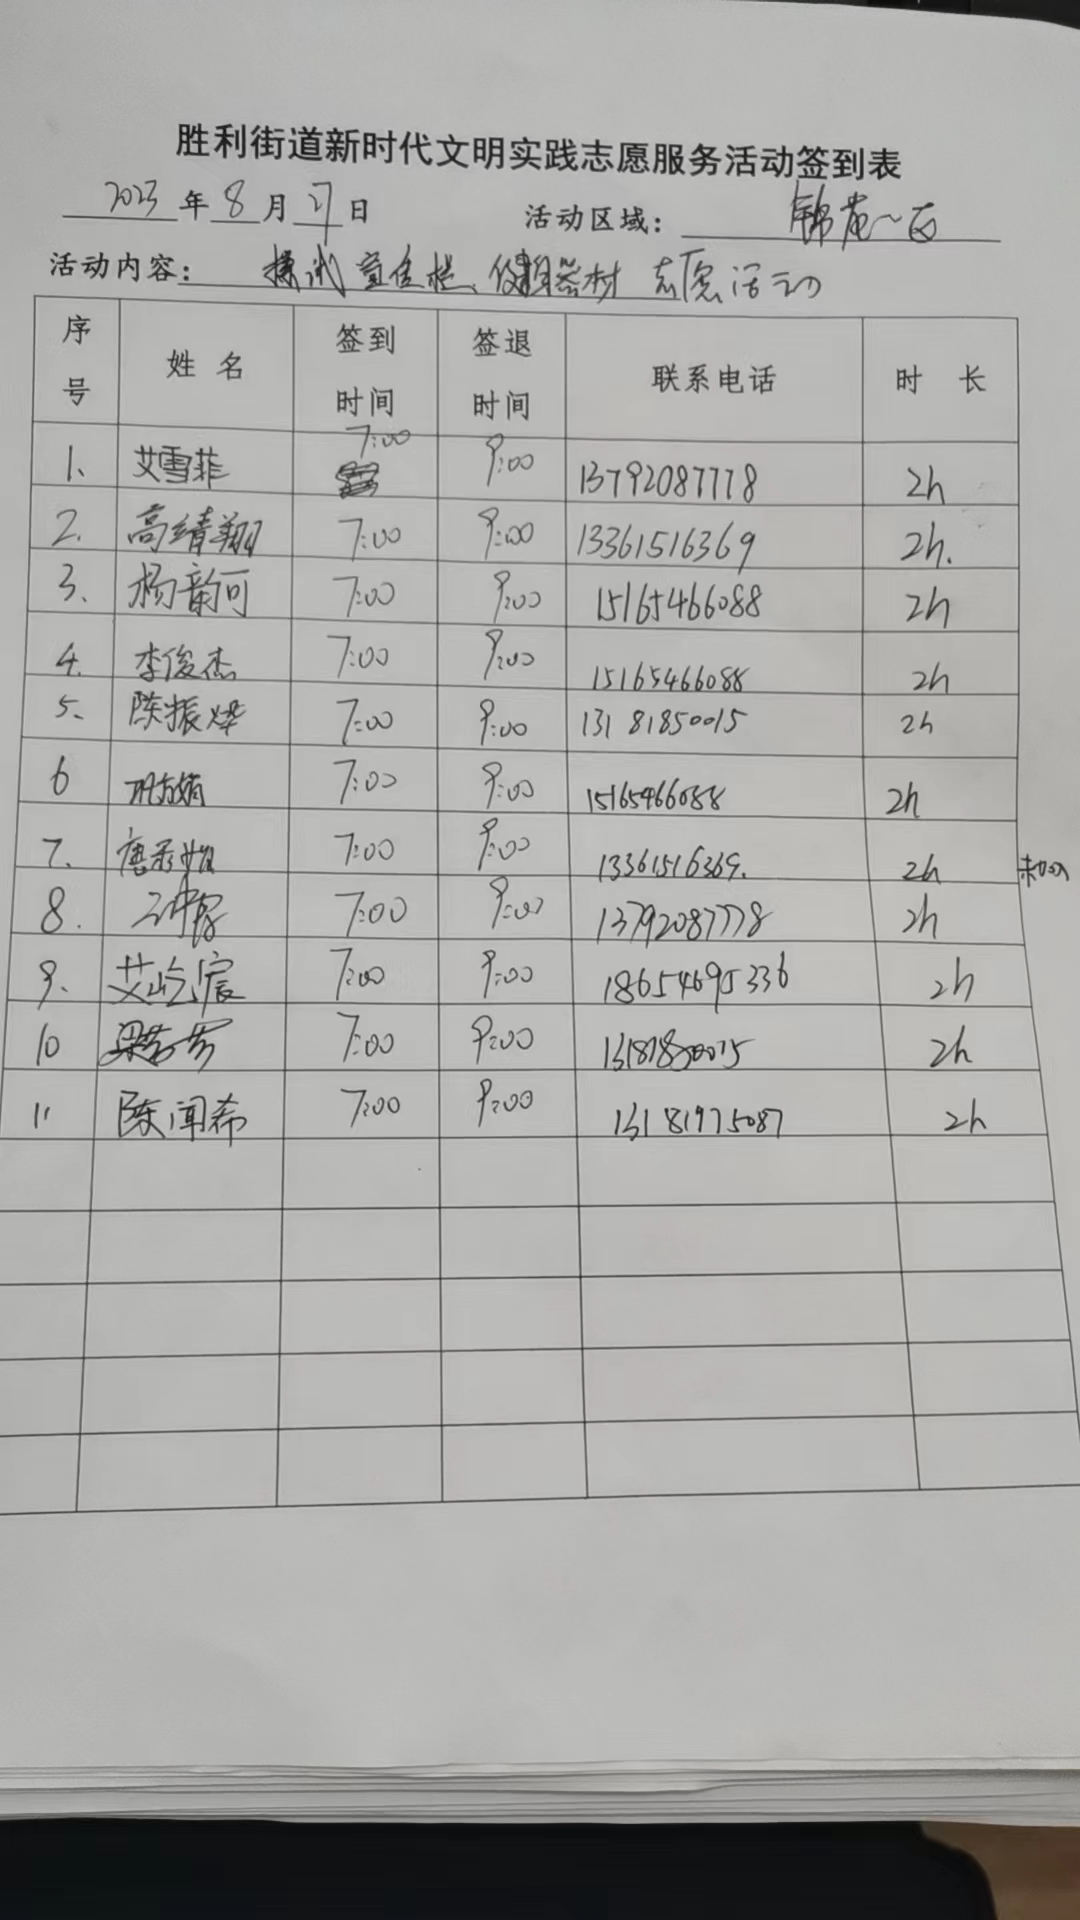 胜利街道新时代文明实践志愿服务活动签到表
2023年8月27日 活动区域: 锦苑一区
活动内容: 擦试宣传栏、健身器材 志愿活动
序号 姓名 签到时间 签退时间 联系电话 时长
1. 艾雪菲 7:00 9:00 13792087778 2h
2. 高绪翔 7:00 9:00 13361516369 2h.
3. 杨韵可 7:00 9:00 15165466088 2h
4. 李俊杰 7:00 9:00 15165466088 2h
5. 陈振烨 7:00 9:00 13181850015 2h
6 7:00 9:00 15165466088 2h
7. 7:00 9:00 13361516369. 2h
8. 7:00 9:00 13792087778 2h
9. 艾屹宸 7:00 9:00 18654695336 2h
10 梁芳芳 7:00 9:00 13181850015 2h
11 陈闻希 7:00 9:00 13181975087 2h